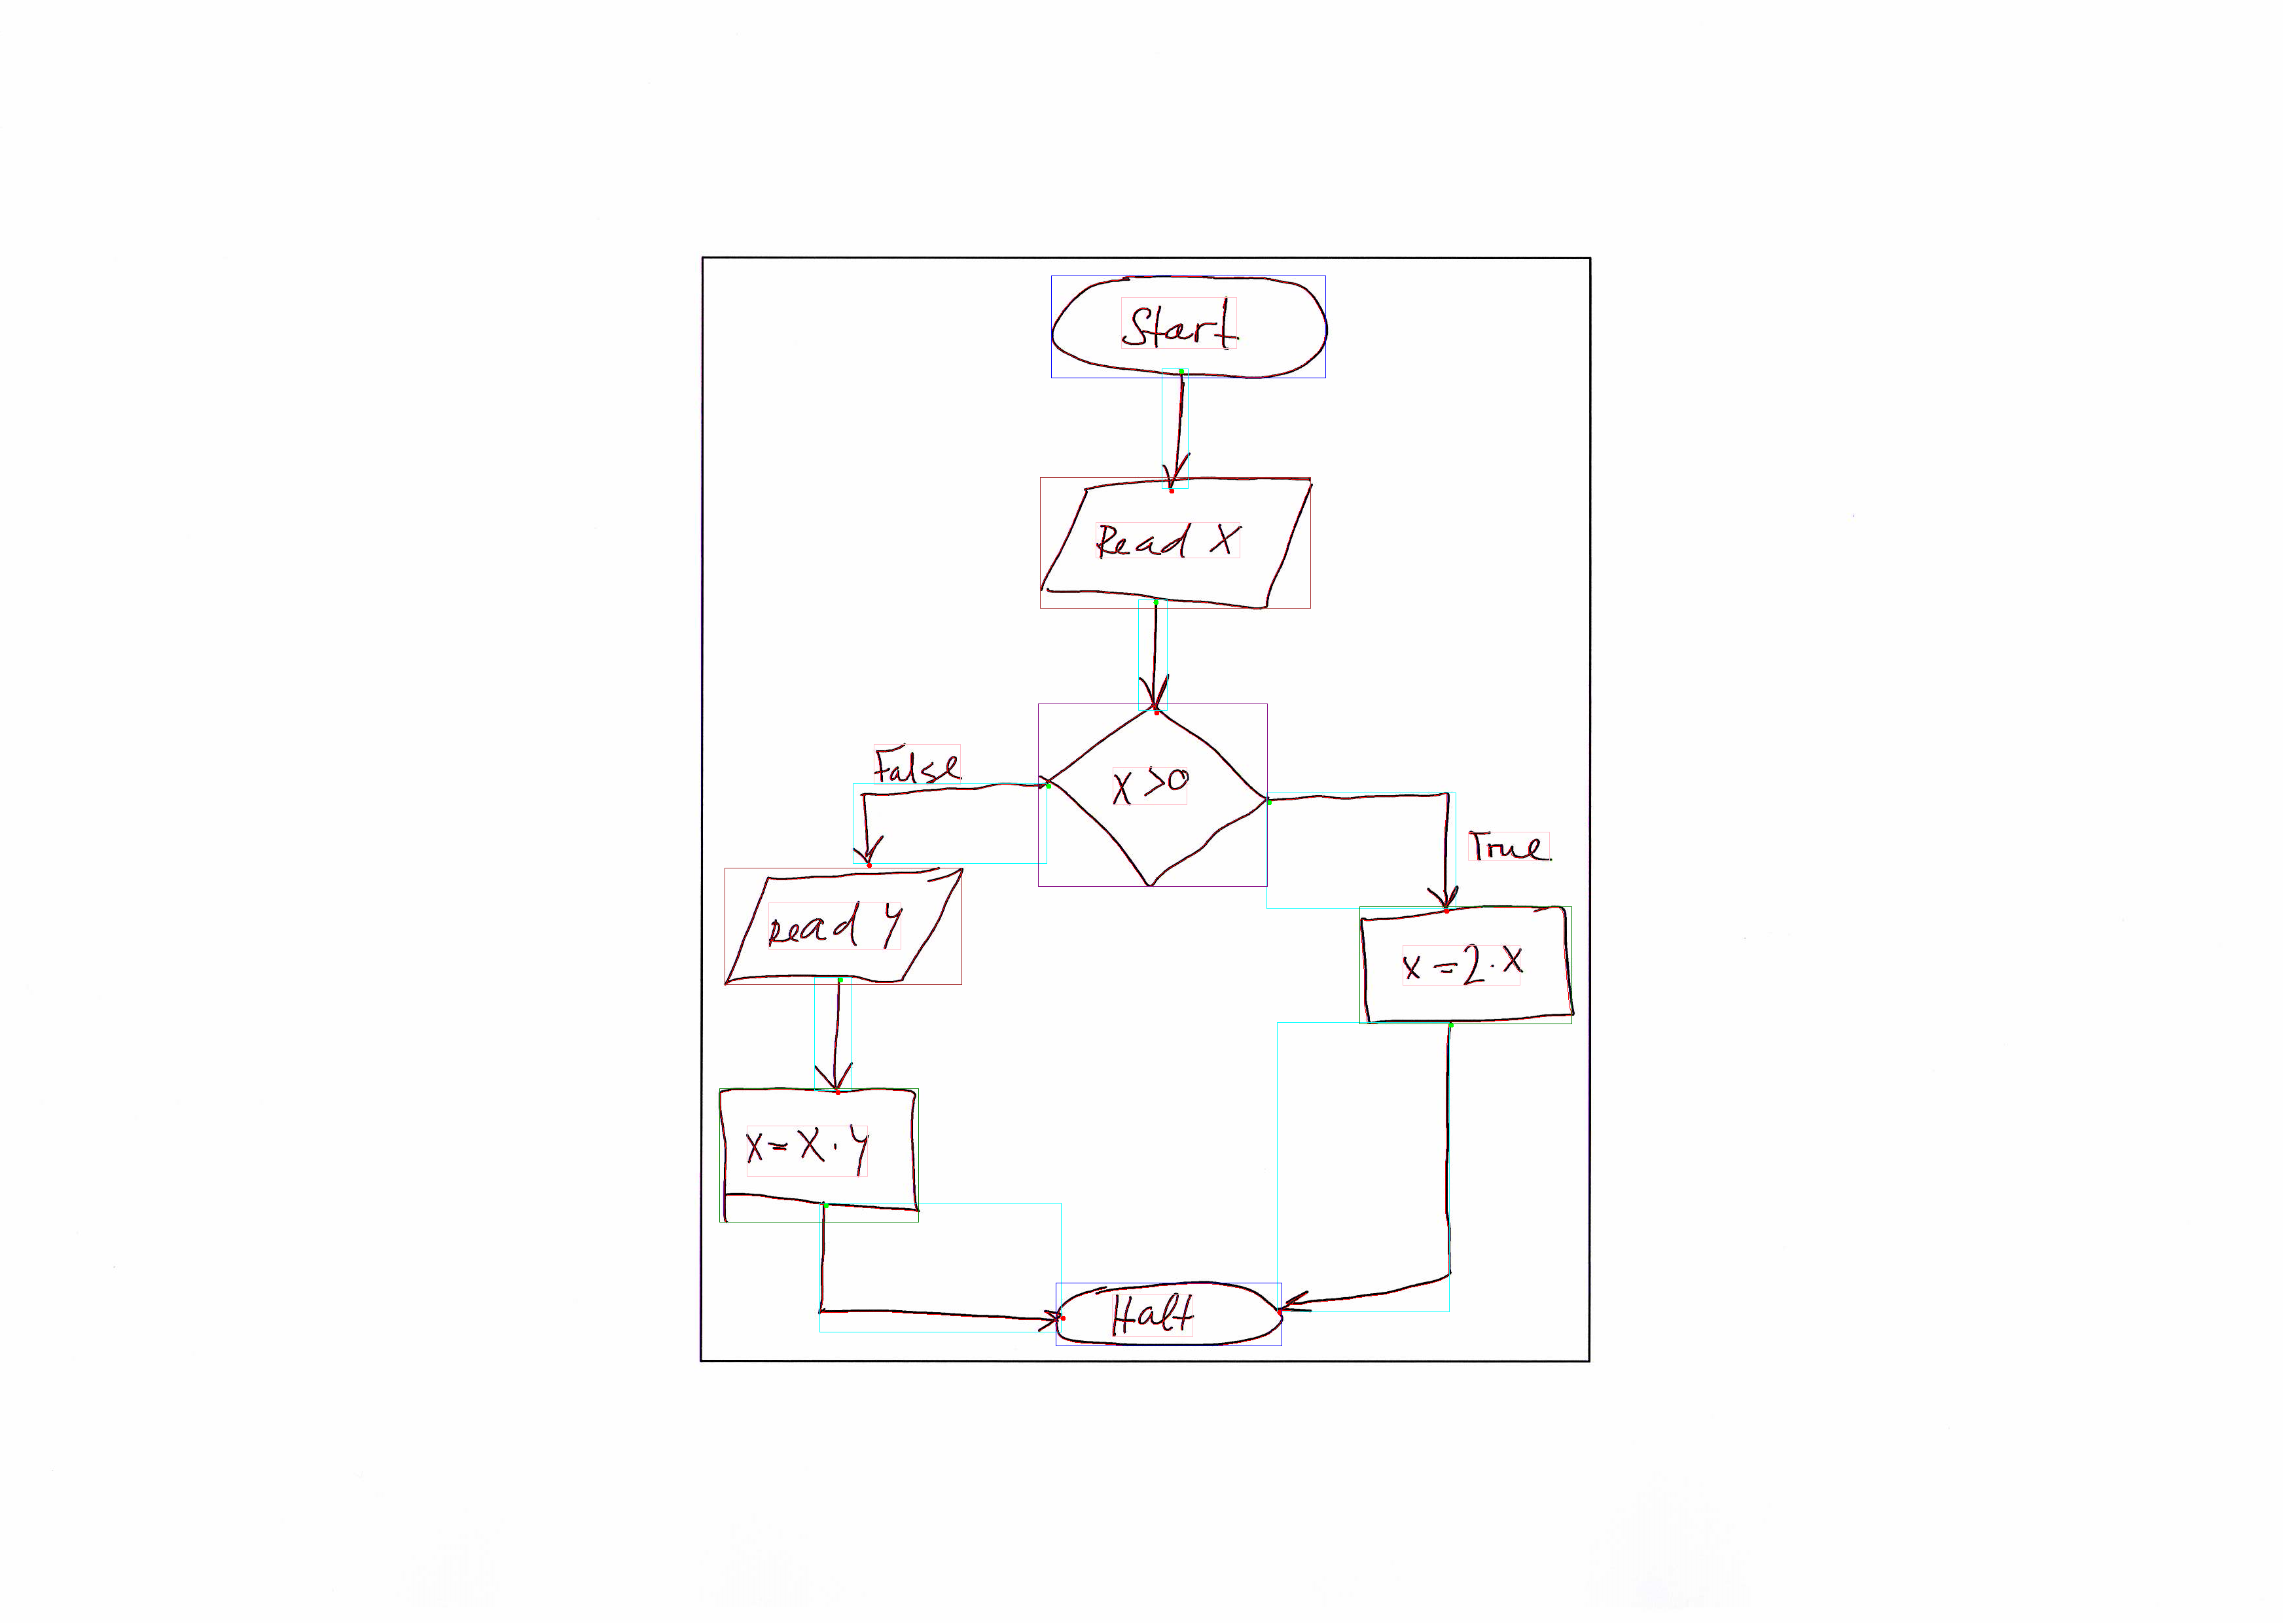 Start
Read X
X >0
False
True
Read Y
X = 2 · X
X = X · Y
Halt